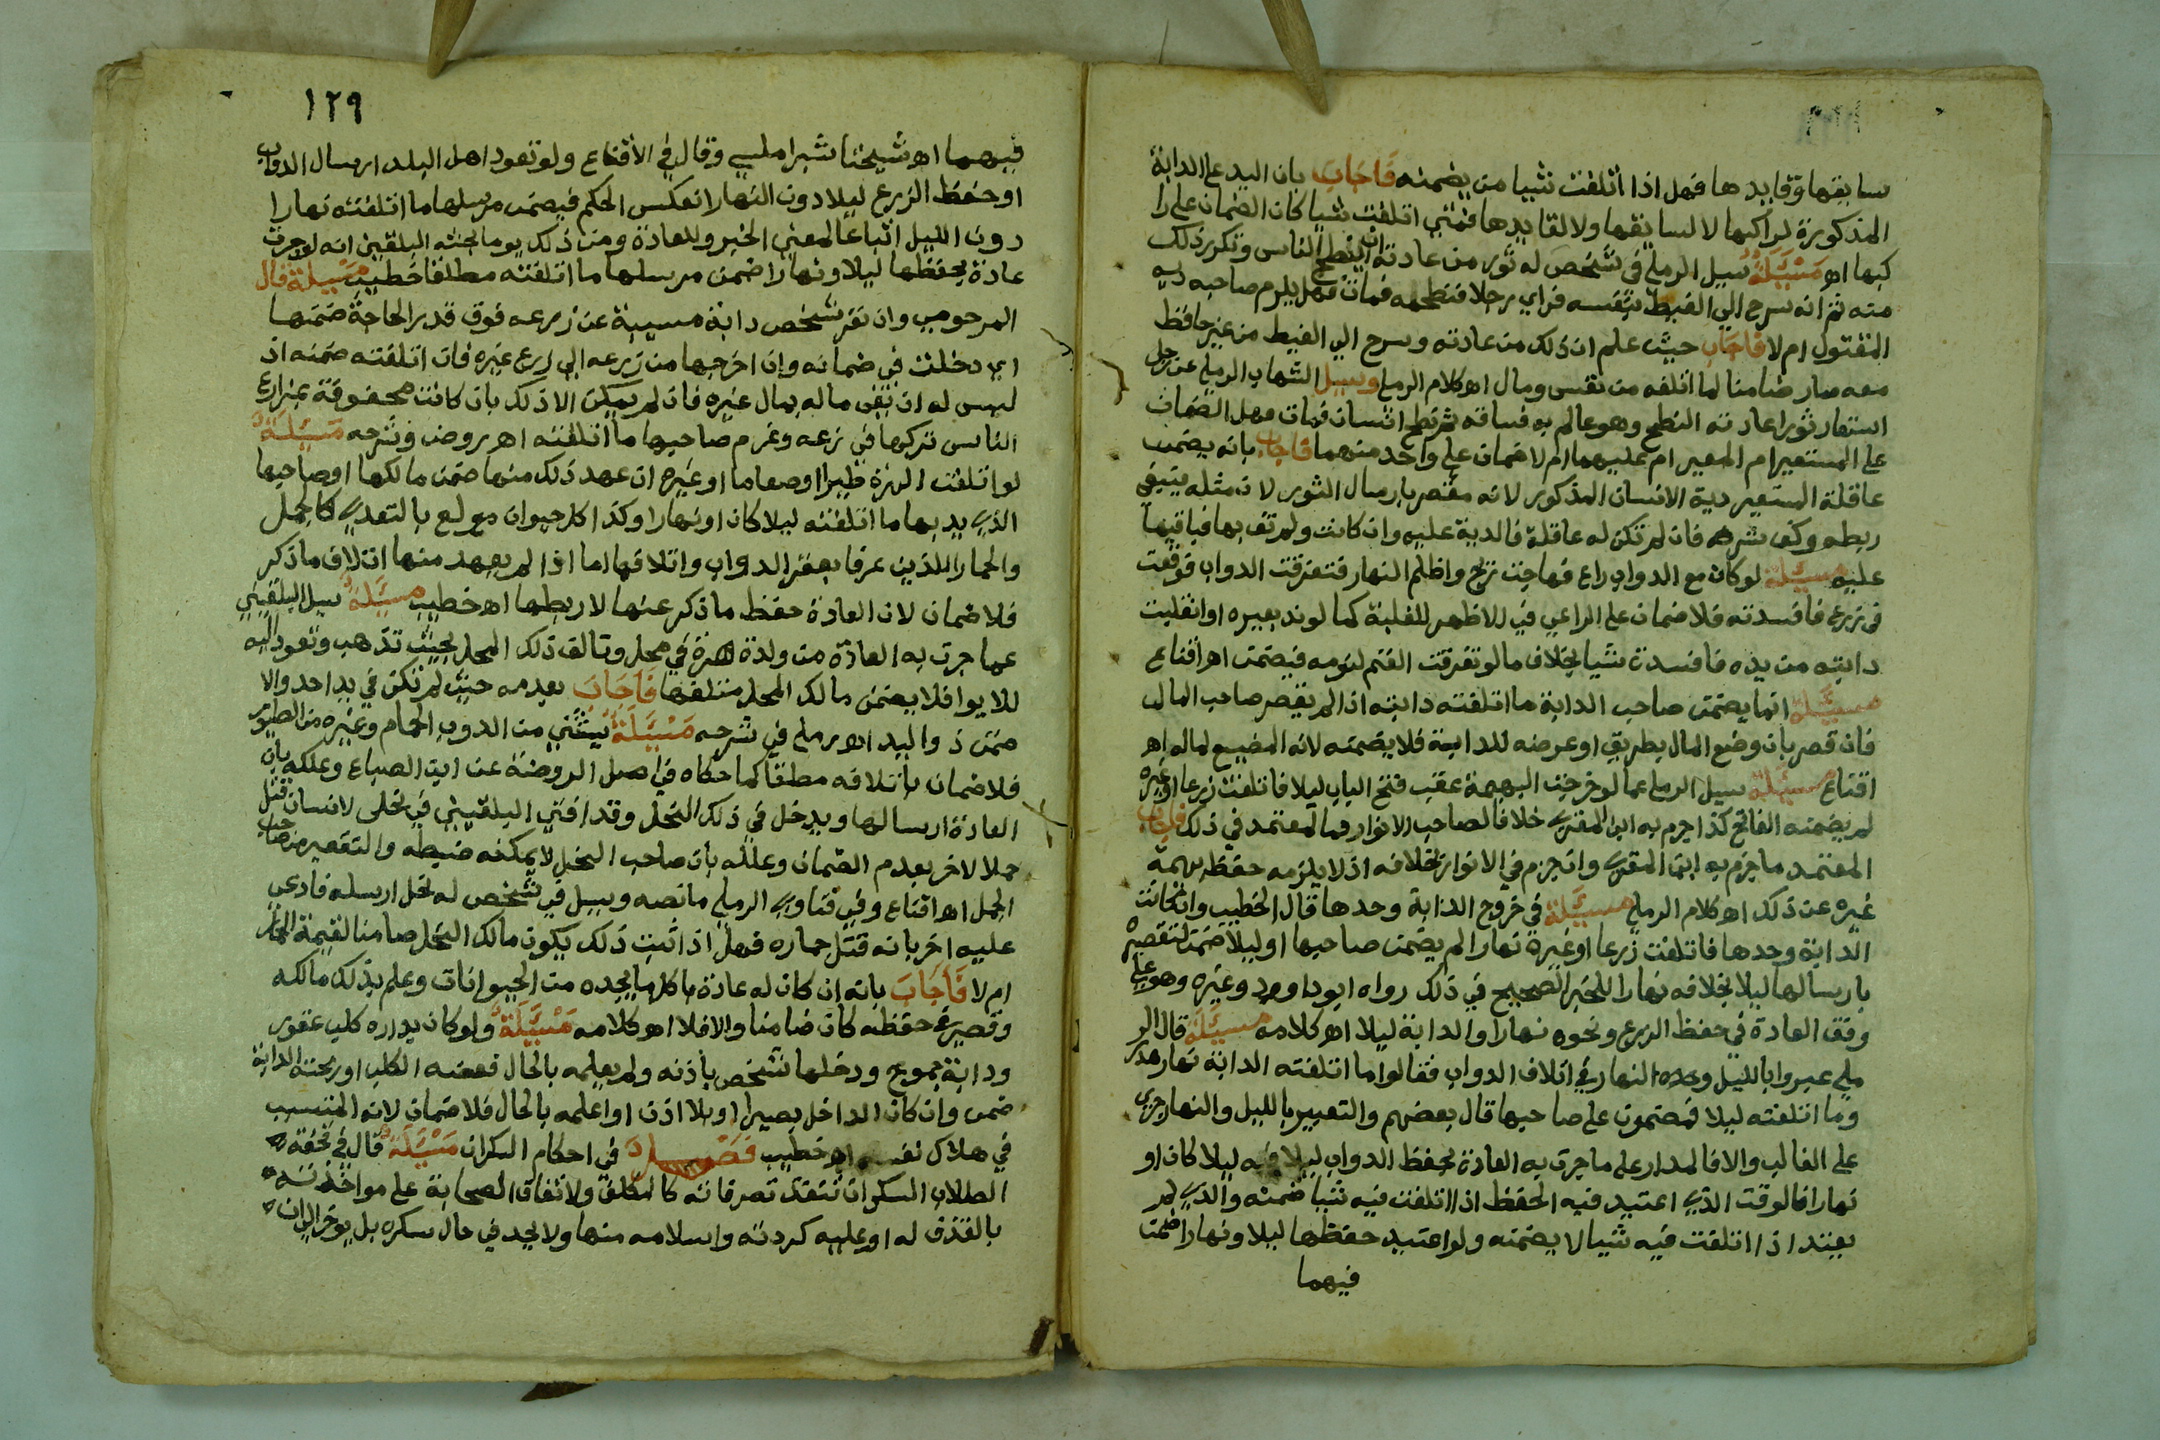 سابقها وقايدها فهل اذا اتلفت شيا من يضمنه فَاَجَابَ بان اليد على الدابة
المذكورة لراكبها لا لسايقها ولا لقايدها فمتي اتلفت شيا كان الضمان على را
كبها اه مَسْيَلَةٌ سيل الرملي في شخص له ثور من عادته ان ينطح الناس وتكرر ذلك
منه ثم انه سرح الي الغيط بنفسه فراي رجلا فنطحه فمات فهل يلزم صاحبه دية
المقتول ام لا فاجاب حيث علم ان ذلك من عادته وسرح الي الغيط من غير حافظ
معه صار ضامنا لما اتلفه من نفس ومال اه كلام الرملي وسيل الشهاب الرملي عن رجل
استعار ثورا عادته النطح وهو عالم به فساقه ثم نطح انسان فمات فهل الضمان
على المستعير ام المعير ام عليهما ام لا ضمان على واحد منهما فاجاب بانه يضمن
عاقلة المستعير دية الانسان المذكور لانه مقصر بارسال الثور لان مثله ينبغي
ربطه وكف شره فان لم تكن له عاقلة فالدية عليه وان كانت ولم تف بها فباقيها
عليه مسيلة لو كان مع الدواب راع فهاجت ريح واظلم النهار فتفرقت الدواب فوقعت
في زرع فافسدته فلا ضمان على الراعي في الاظهر للغلبة كما لو ند بعيره او انفلت
دابته من يده فافسدت شيا بخلاف مالو تفرقت الغنم لنومه فيضمن اه اقناع
مسيلة انما يضمن صاحب الدابة ما اتلفته دابته اذا لم يقصر صاحب المال
فان قصر بان وضع المال بطريق او عرضه للدابة فلا يضمنه لانه المضيع لماله اه
اقناع مسيلة سيل الرملي عما لو خرجت البهيمة عقب فتح الباب ليلا فاتلفت زرعا او غيره
لم يضمنه الفاتح كذا جزم به ابن المقري خلافا لصاحب الانوار فما المعتمد في ذلك فاجاب
المعتمد ما جزم به ابن المقري وان جزم في الانوار بخلافه اذ لا يلزمه حفظ بهيمة
غيره عن ذلك اه كلام الرملي مسيَّلة في خروج الدابة وحدها قال الخطيب وان كانت
الدابة وحدها فاتلفت زرعا او غيره نهارا لم يضمن صاحبها او ليلا ضمن لتقصيره
بارسالها ليلا بخلافه نهارا للخبر الصحيح في ذلك رواه ابو داوود وغيره وهو على
وفق العادة في حفظ الزرع ونحوه نهارا والدابة ليلا اه كلامه مسيَّلة قال الر
ملي عبروا بالليل وحده النهار في اتلاف الدواب فقالوا ما اتلفته الدابة نهارا هدر
وما اتلفته ليلا فمضمون على صاحبها قال بعضهم والتعبير بالليل والنهار جري
على الغالب والا فالمدار على ما جرت به العادة بحفظ الدواب ليلا كان او
نهارا فالوقت الذي اعتيد فيه الحفظ اذا اتلفت فيه شيا ضمنه والذي لم
يعتد اذا اتلفت فيه شيا لا يضمنه ولو اعتيد حفظها ليلا ونهارا ضمن
فيهما
١٢٩
فيهما اه شيخنا شبراملسي وقال في الاقناع ولو تعود اهل البلد ارسال الدواب
او حفظ الزرع ليلا دون النهار انعكس الحكم فيضمن مرسلها ما اتلفته نهارا
دون الليل اتباعا لمعني الخبر وللعادة ومن ذلك يوما بحثه البلقيني انه لو جرت
عادة بحفظها ليلا ونهارا ضمن مرسلها ما اتلفته مطلقا خطيب مسيلة قال
المرحومي وان نفر شخص دابة مسيبة عن زرعه فوق قدر الحاجة ضمنها
اي دخلت في ضمانه وان اخرجها من زرعه الي زرع غيره فان اتلفته ضمنه اذ
ليس له ان يقي ماله بمال غيره فان لم يمكن الا ذلك بان كانت محفوفة بمزارع
الناس تركها في زرعه وغرم صاحبها ما اتلفته اه روض وشرحه مَسْيَلَةٌ
لو اتلفت الهرة طيرا او طعاما او غيره ان عهد ذلك منها ضمن مالكها او صاحبها
الذي يد بها ما اتلفته ليلا كان او نهارا وكذا كل حيوان مولع بالتعدي كالجمل
والحمار اللذين عرفا بعقر الدواب واتلافها اما اذا لم يعهد منها اتلاف ما ذكر
فلا ضمان لان العادة حفظ ما ذكر عنها لا ربطها اه خطيب مسيَّلة سيل البلقيني
عما جرت به العادة من ولدة هرة في محل وتالف ذلك المحل بحيث تذهب وتعود اليه
للايوا فلا يضمن مالك المحل متلفها فَاَجَابَ بعدمه حيث لم تكن في يد احد والا
ضمن ذو اليد اه رملي في شرحه مَسْيَلَةٌ يستثني من الدوب الحمام وغيره من الطيور
فلا ضمان باتلافه مطلقا كما حكاه في اصل الروضة عن ابن الصباغ وعلله بان
العادة ارسالها ويدخل في ذلك النحل وقد افتي البلقيني في نحل لانسان قتل
جملا لاخر بعدم الضمان وعلله بان صاحب النحل لا يمكنه ضبطه والتقصير من صاحب
الجمل اه اقناع وفي فتاوي الرملي مانصه وسيل في شخص له نحل ارسله فادعي
عليه اخر بانه قتل حماره فهل اذا ثبت ذلك يكون مالك النحل ضامنا لقيمة الحمار
ام لا فَاَجَابَ بانه ان كان له عادة باكل ما يجده من الحيوانات وعلم بذلك مالكه
وقصر في حفظه كان ضامنا والا فلا اه كلامه مَسْيَلَةٌ ولو كان بداره كلب عقور
ودابة جموح ودخلها شخص باذنه ولم يعلمه بالحال فعضه الكلب او رمحته الدابة
ضمن وان كان الداخل بصيرا او بلا اذن او اعلمه بالحال فلا ضمان لانه المتسبب
في هلاك نفسه اه خطيب فَصْــلٌ في احكام السكران مَسْيَلَةٌ قال في تحفة
الطلاب السكران تنفذ تصرفاته كالمكلف ولاتفاق الصحابة على مواخذته
بالقذف له او عليه كردته واسلامه منها ولا يحد في حال سكره بل يوخر الي ان